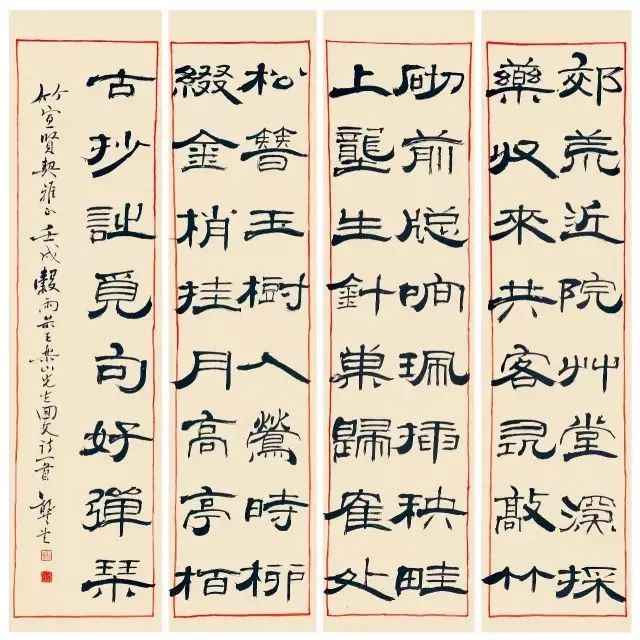 郊荒近院艸堂深採
藥收來共客尋敲竹
砌前窓响珮插秧畦
上壟生針巢歸雀处
松簪玉樹入鶯時柳
綴金梢挂月高亭栢
古抄詩覓句好彈琹
竹宣賢契雅正 壬戌穀雨 王泰山先生回文詩一首 龔望